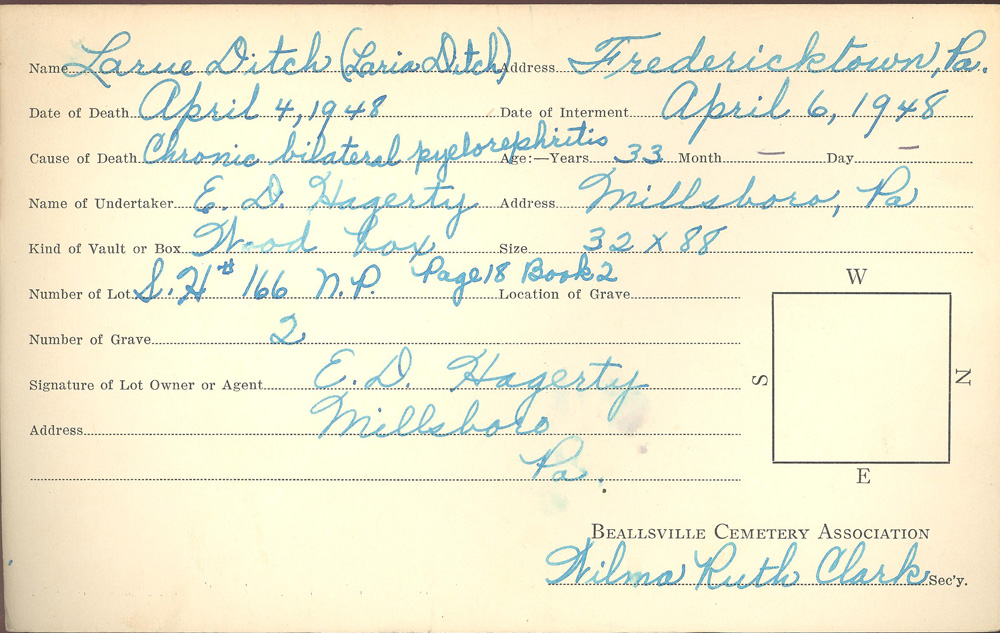 Name Larue Ditch (Laria Ditch) Address Fredericktown, Pa.
Date of Death April 4, 1948 Date of Interment April 6, 1948
Cause of Death Chronic bilateral pyelorephritis Age:—Years 33 Month — Day —
Name of Undertaker E. D. Hagerty Address Millsboro, Pa
Kind of Vault or Box Wood box Size 32 x 88
Number of Lot S. H # 166 N.P. Page 18 Book 2 Location of Grave
Number of Grave 2
Signature of Lot Owner or Agent E. D. Hagerty
Address Millsboro
Pa.
W
S
N
E
Beallsville Cemetery Association
Wilma Ruth Clark Sec'y.